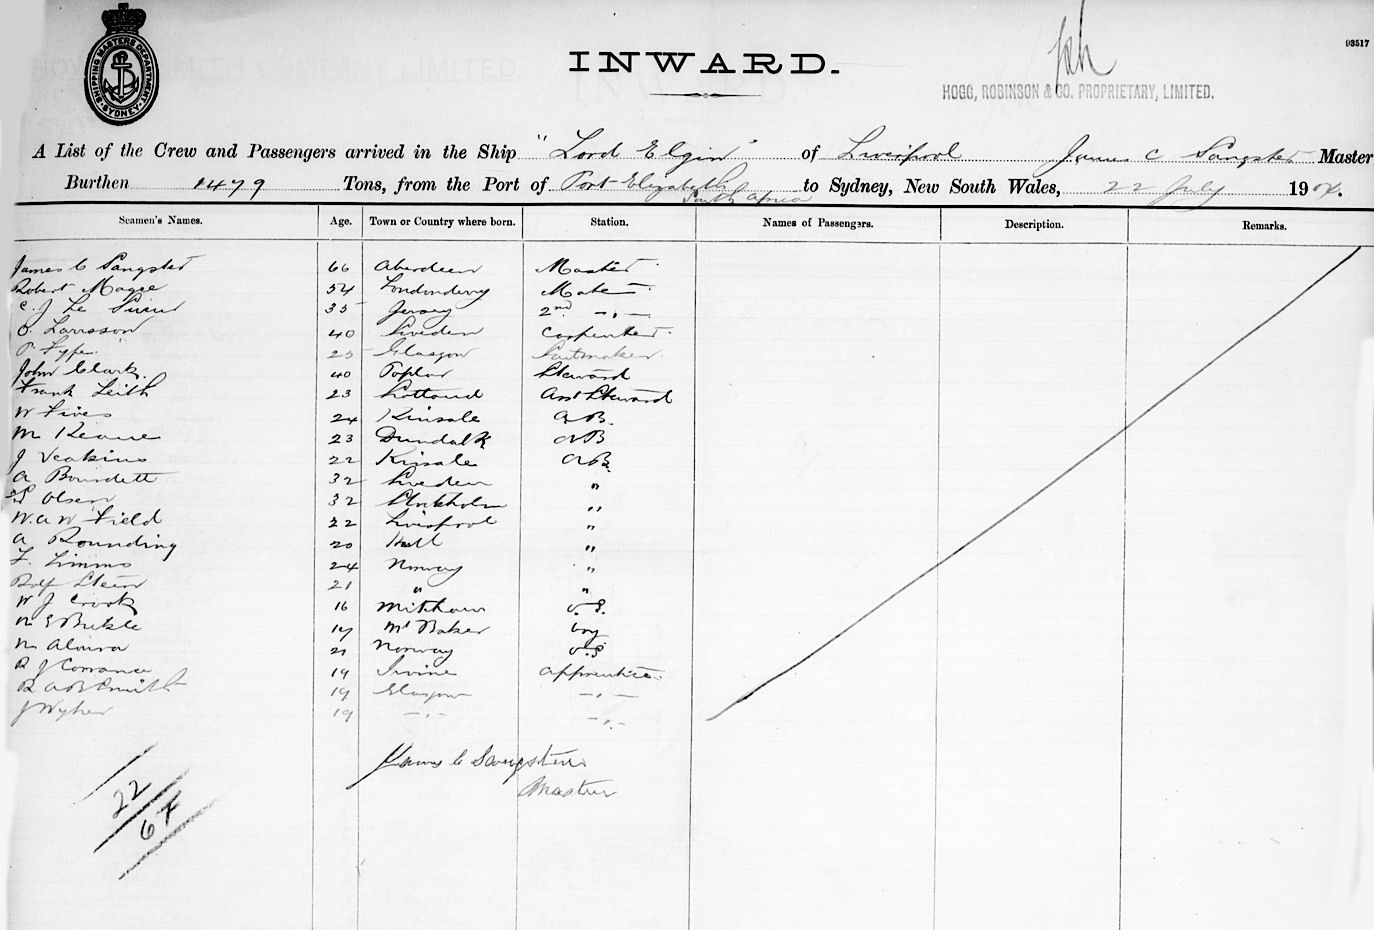 SHIPPING MASTERS DEPARTMENT SYDNEY
INWARD.
93517
HOGG, ROBINSON & CO. PROPRIETARY, LIMITED.
A List of the Crew and Passengers arrived in the Ship "Lord Elgin" of Liverpool James C Sangster Master
Burthen 1479 Tons, from the Port of Port Elizabeth South Africa to Sydney, New South Wales, 22 July 1904.
Seamen's Names. Age. Town or Country where born. Station. Names of Passengers. Description. Remarks.
James C Sangster 66 Aberdeen Master
Robert Magee 54 Londonderry Mate
C. J Le Sueur 35 Jersey 2nd -"-
O. Larsson 40 Sweden Carpenter
P. Fyfe. 25 Glasgow Sailmaker
John Clark. 40 Poplar Steward
Frank Leith 23 Scotland Asst Steward
W Fives 24 Kinsale A B.
M Keane 23 Dundalk A B
J Jeakins 22 Kinsale A B.
A Bourdett 32 Sweden "
S Olsen 32 Stockholm "
W. A W Field 22 Liverpool "
A Rounding 20 Hull "
F. Simms 24 Norway "
Rolf Stein 21 " "
W J Crook 16 Mitcham O. S.
E Bickle 17 Mt Baker boy
21 Norway O.S
R J Corrance 19 Irvine Apprentice
R A B Smith 19 Glasgow -"-
J Wyher 19 -"- -"-
James C Sangster
Master
22
67